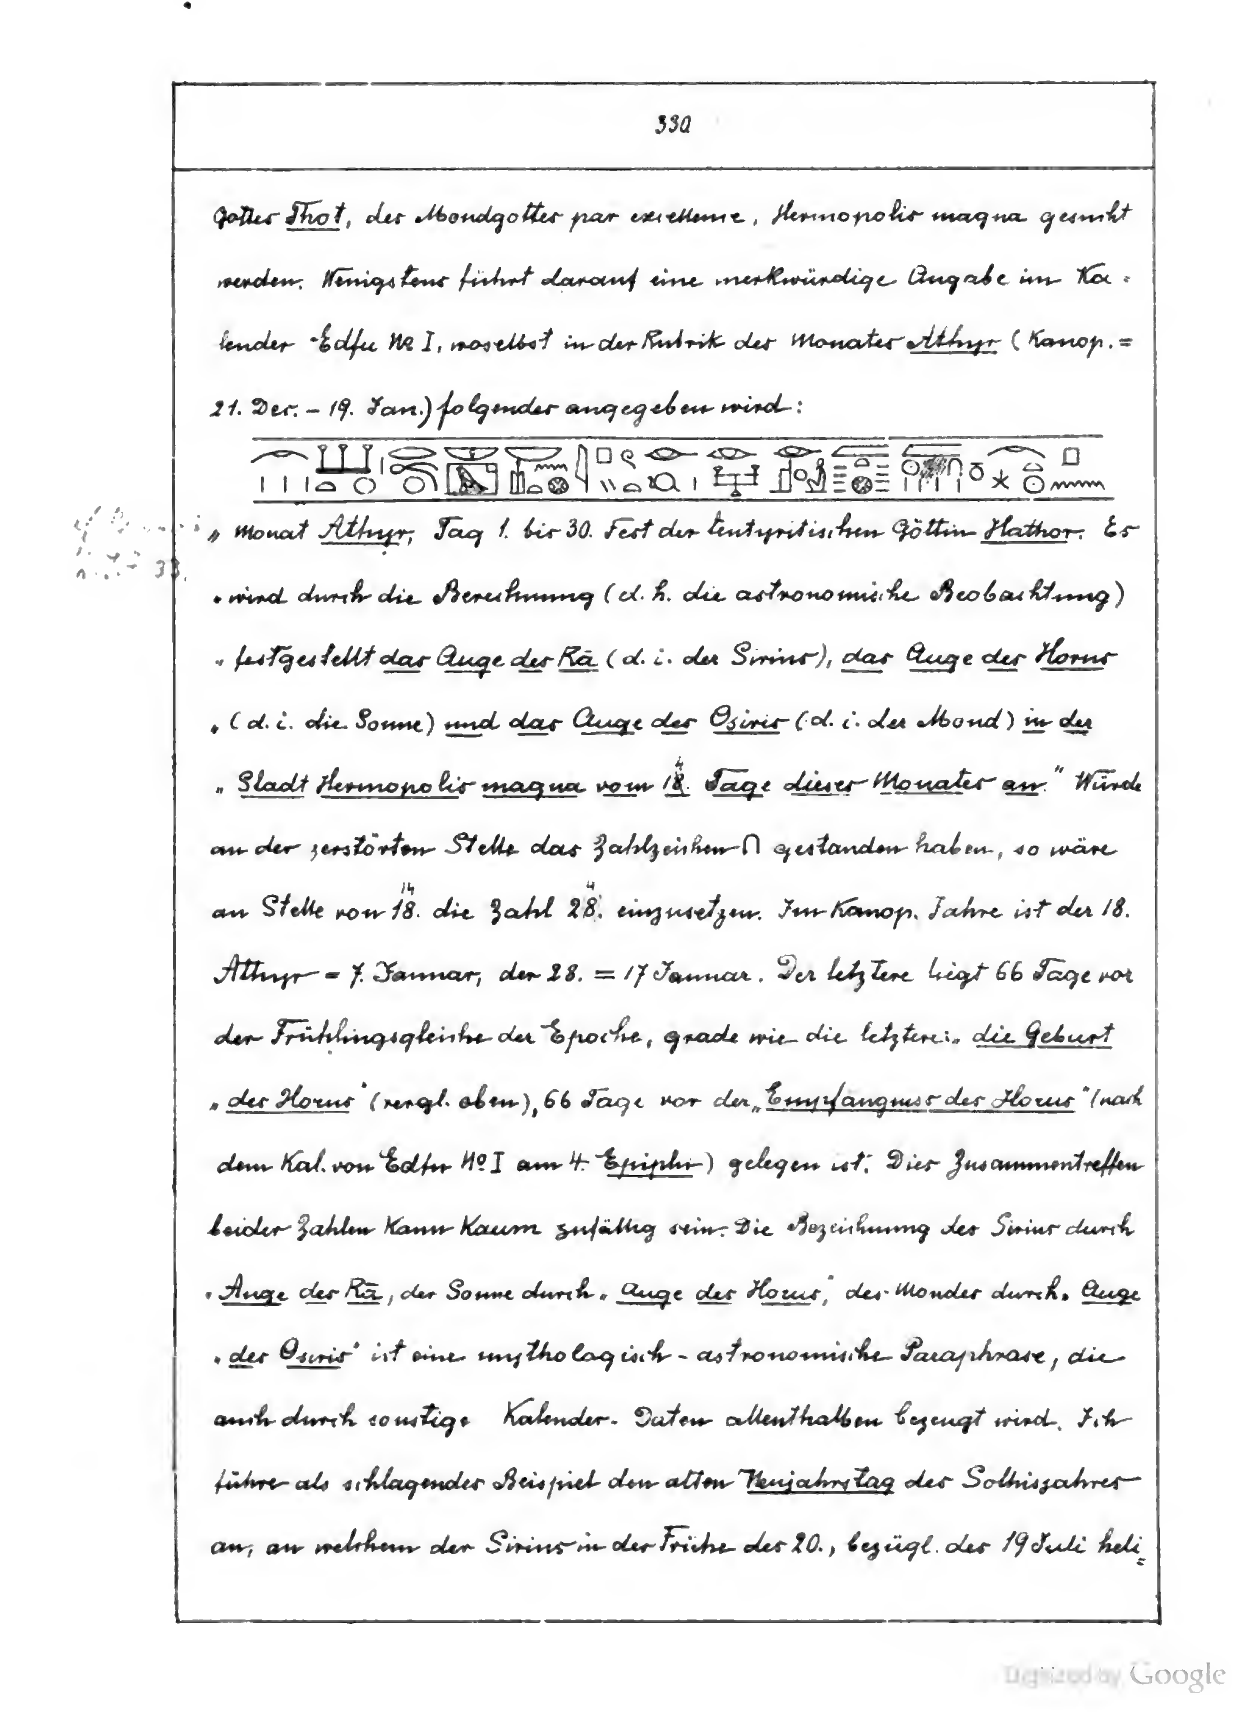 330
Gottes Thot, des Mondgottes par excellence, Hermopolis magna gesucht
werden. Wenigstens führt darauf eine merkwürdige Angabe im Ka-
lender Edfu No I, woselbst in der Rubrik des Monates Athyr (Kanop. =
21. Dec. - 19. Jan.) folgendes angegeben wird:
„ Monat Athyr, Tag 1. bis 30. Fest der tentyritischen Göttin Hathor. Es
„ wird durch die Berechnung (d. h. die astronomische Beobachtung)
„ festgestellt das Auge des Rā (d. i. der Sirius), das Auge des Horus
„ (d. i. die Sonne) und das Auge des Osiris (d. i. der Mond) in der
„ Stadt Hermopolis magna vom 18. Tage dieses Monates an." Würde
an der zerstörten Stelle das Zahlzeichen ∩ gestanden haben, so wäre
an Stelle von 18. die Zahl 28. einzusetzen. Im Kanop. Jahre ist der 18.
Athyr = 7. Januar, der 28. = 17 Januar. Der letztere liegt 66 Tage vor
der Frühlingsgleiche der Epoche, grade wie die letztere: „ die Geburt
„ des Horus" (vergl. oben), 66 Tage vor der „Empfängniss des Horus" (nach
dem Kal. von Edfu No I am 4. Epiphi) gelegen ist. Dies Zusammentreffen
beider Zahlen kann kaum zufällig sein. Die Bezeichnung des Sirius durch
„ Auge des Rā, der Sonne durch „ Auge des Horus", des Mondes durch „ Auge
„ des Osiris" ist eine mythologisch-astronomische Paraphrase, die
auch durch sonstige Kalender-Daten allenthalben bezeugt wird. Ich
führe als schlagendes Beispiel den alten Neujahrstag des Sothisjahres
an, an welchem der Sirius in der Frühe des 20., bezügl. des 19 Juli heli=
Digitized by Google